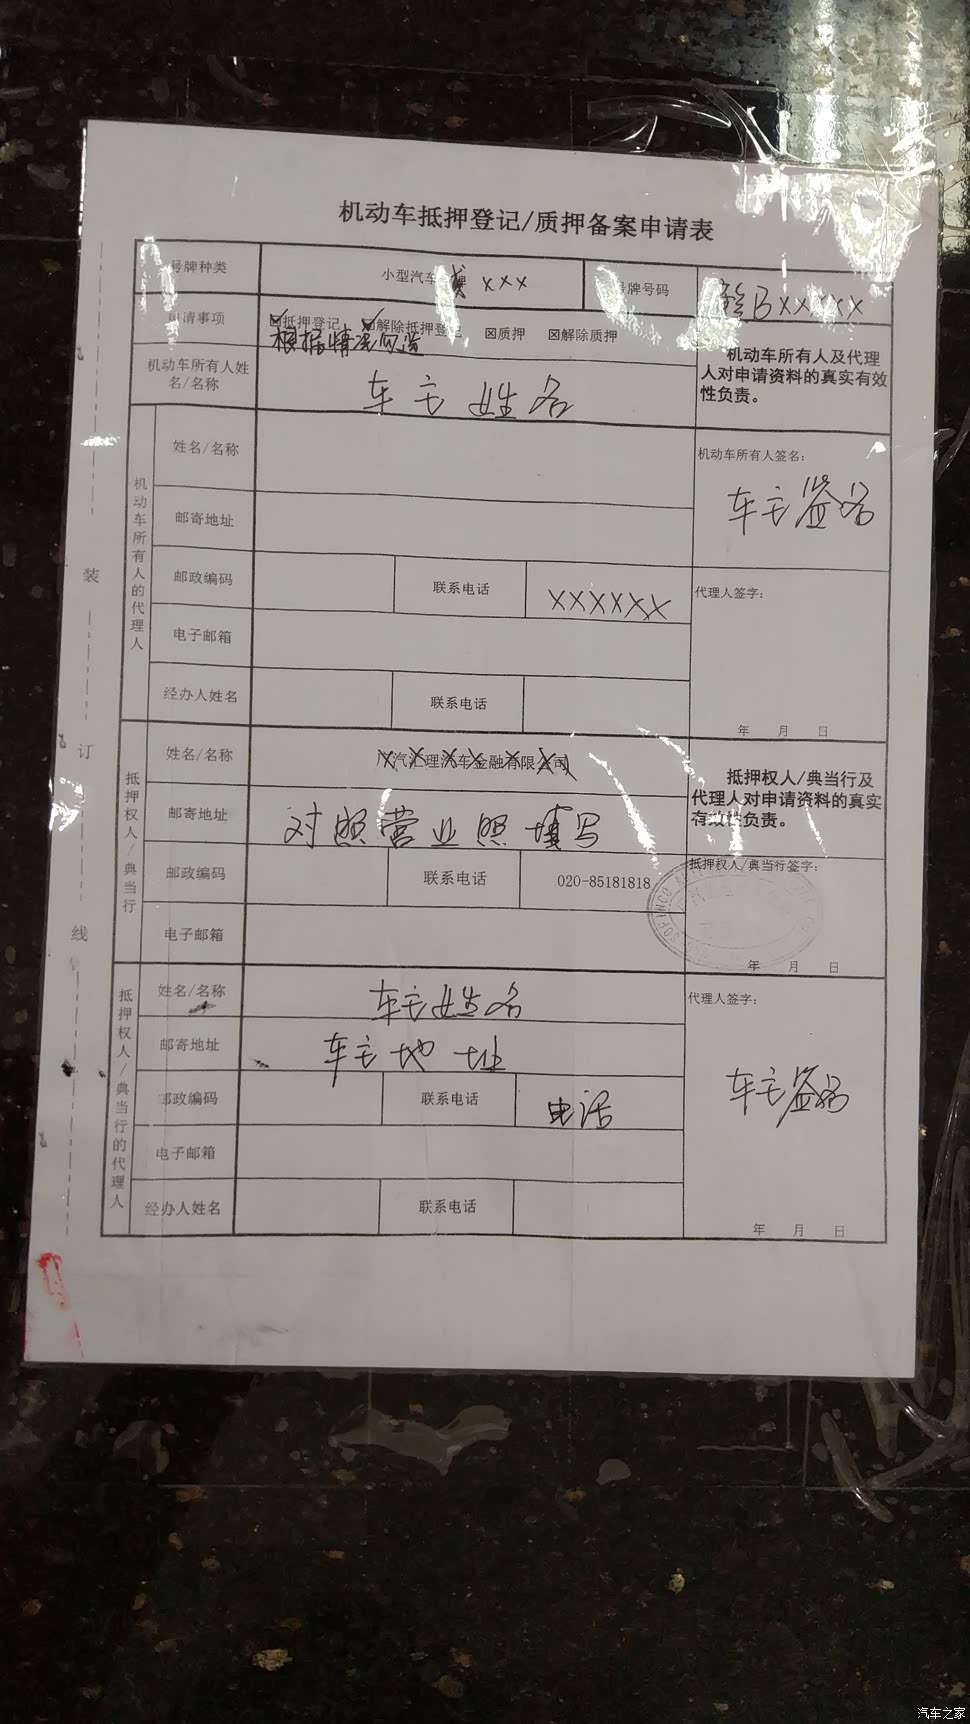 机动车抵押登记/质押备案申请表
号牌种类 小型汽车 xxx 号牌号码 Bxxxxx
申请事项 抵押登记 解除抵押登记 质押 解除质押
根据情况勾选
机动车所有人姓名/名称 车主姓名
机动车所有人及代理人对申请资料的真实有效性负责。
机动车所有人的代理人
姓名/名称
机动车所有人签名:
车主签名
邮寄地址
邮政编码 联系电话 XXXXXX
代理人签字:
电子邮箱
经办人姓名 联系电话
年 月 日
抵押权人/典当行
姓名/名称 广汽汇理汽车金融有限公司
抵押权人/典当行及代理人对申请资料的真实有效性负责。
邮寄地址 对照营业照填写
邮政编码 联系电话 020-85181818
抵押权人/典当行签字:
SOFINCO
电子邮箱
年 月 日
抵押权人/典当行的代理人
姓名/名称 车主姓名
代理人签字:
邮寄地址 车主地址
邮政编码 联系电话 电话
车主签名
电子邮箱
经办人姓名 联系电话
年 月 日
装
订
线
汽车之家